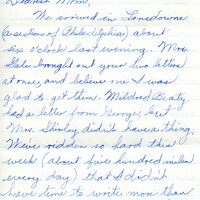 Dearest Mom,
We arrived in Lansdowne
(a section of Philadelphia) about
six o'clock last evening. Mrs.
Gale brought out your two letters
at once, and believe me I was
glad to get them. Mildred Beaty
had a letter from George, but
Mrs. Shirley didn't have a thing.
We've ridden so hard this
week (about five hundred miles
every day) that I didn't
have time to write more than